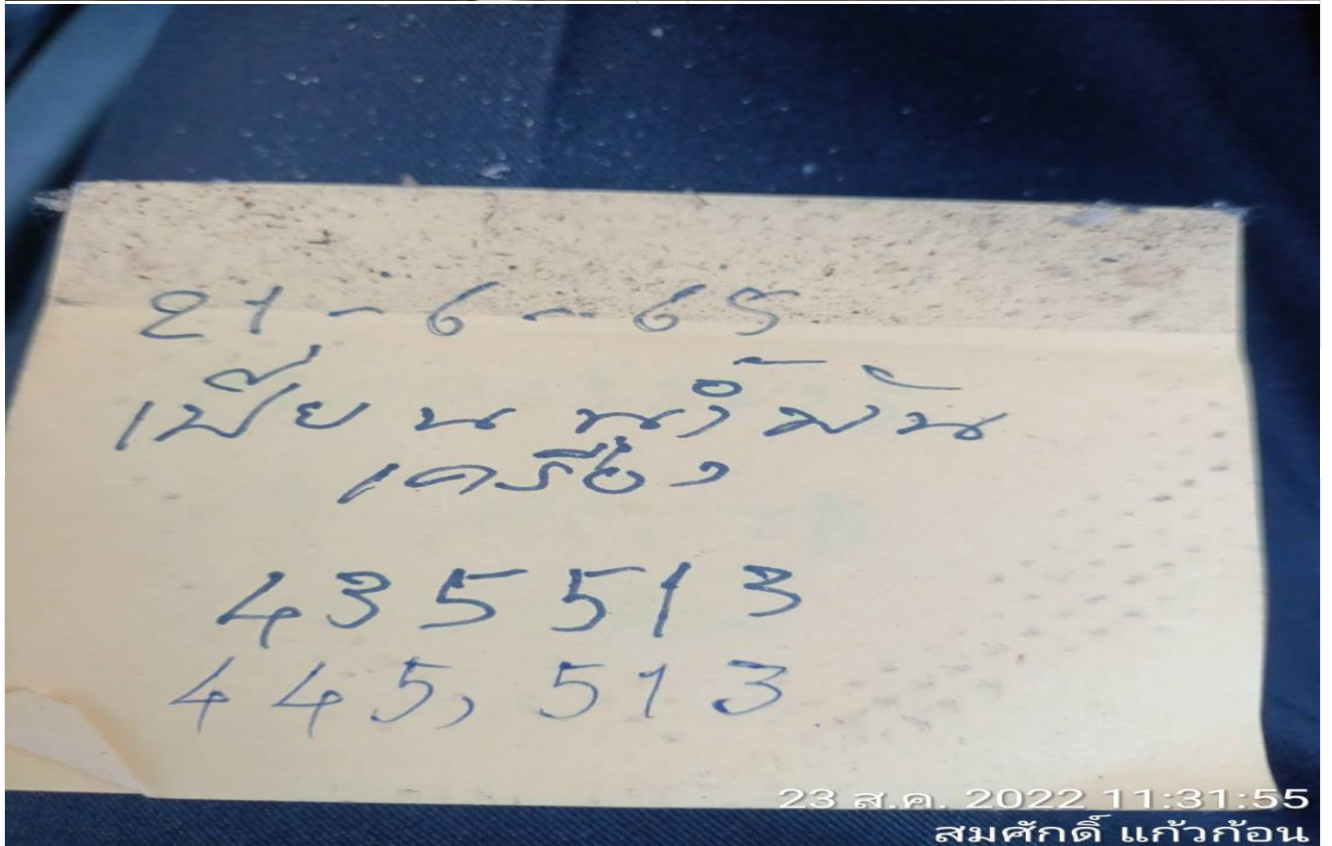 21-6-65
เพี่ยน น้ำมัน
เครื่อง
435513
445,513
23 ส.ค. 2022 11:31:55
สมศักดิ์ แก้วก้อน